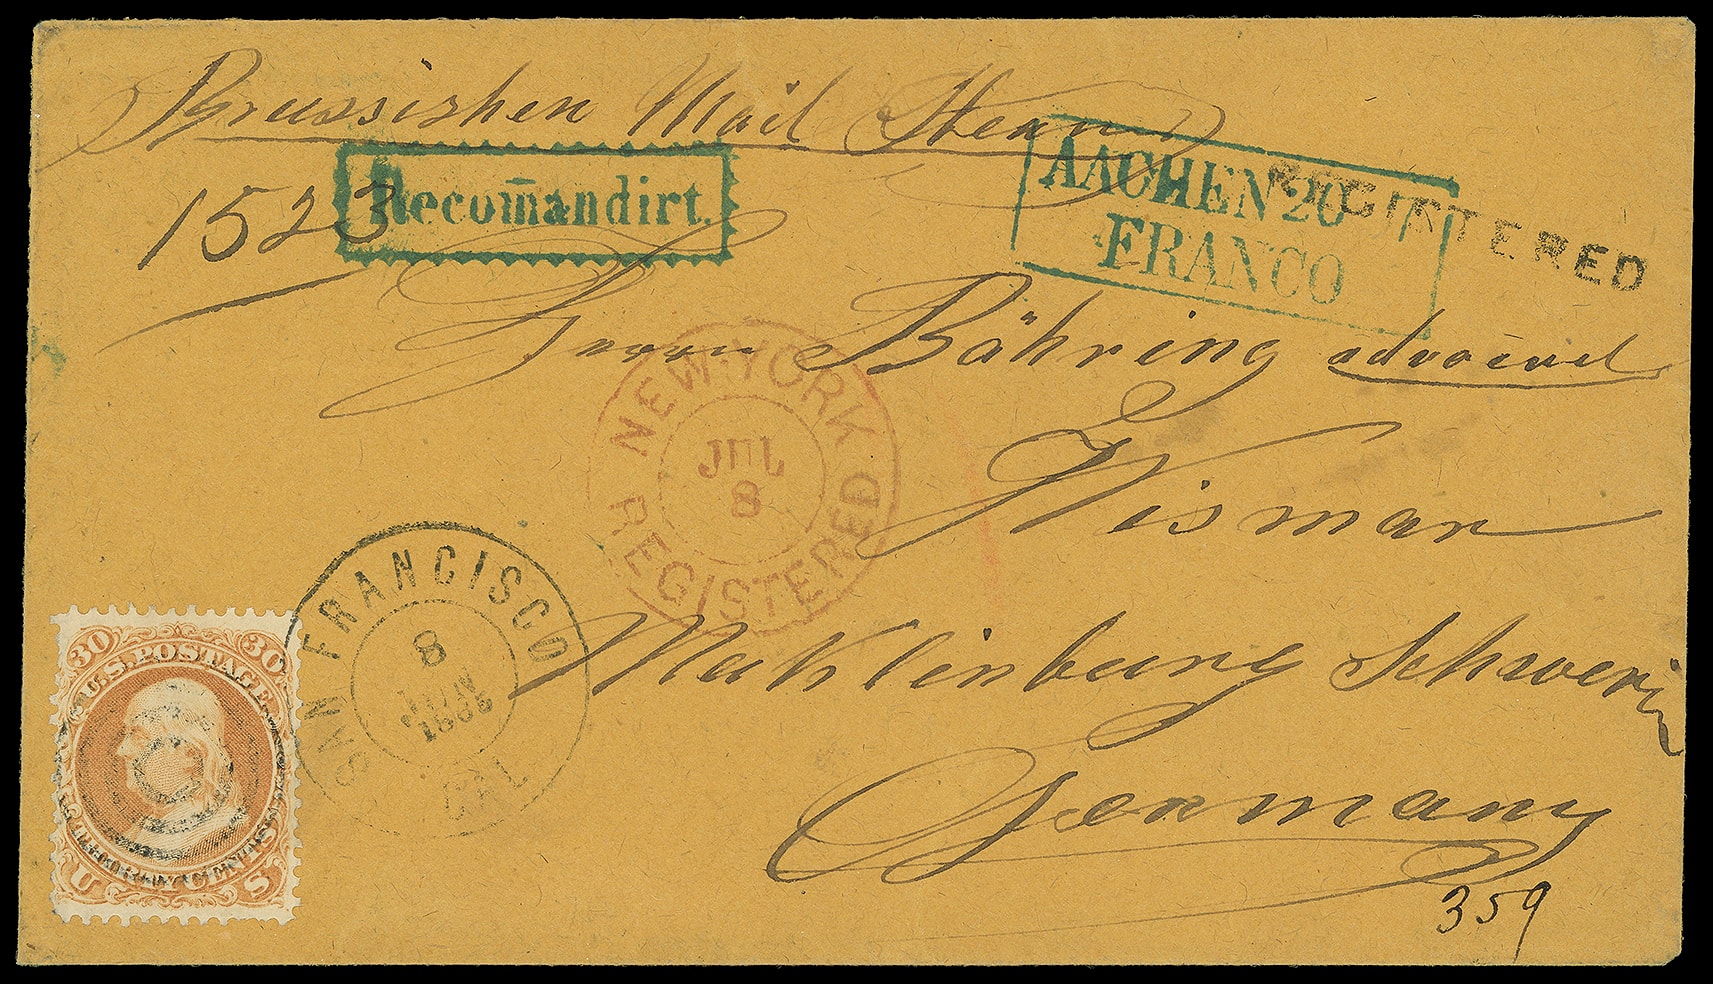 Prussishen Mail Steam
1523
Recom̄andirt.
AACHEN 20
FRANCO
REGISTERED
Herrn Bähring
Wismar
Meklinburg Schwerin
Germany
359
NEW-YORK
JUL
8
REGISTERED
SAN FRANCISCO
8
JUN
CAL
30 30
U.S. POSTAGE
THIRTY CENTS
U S